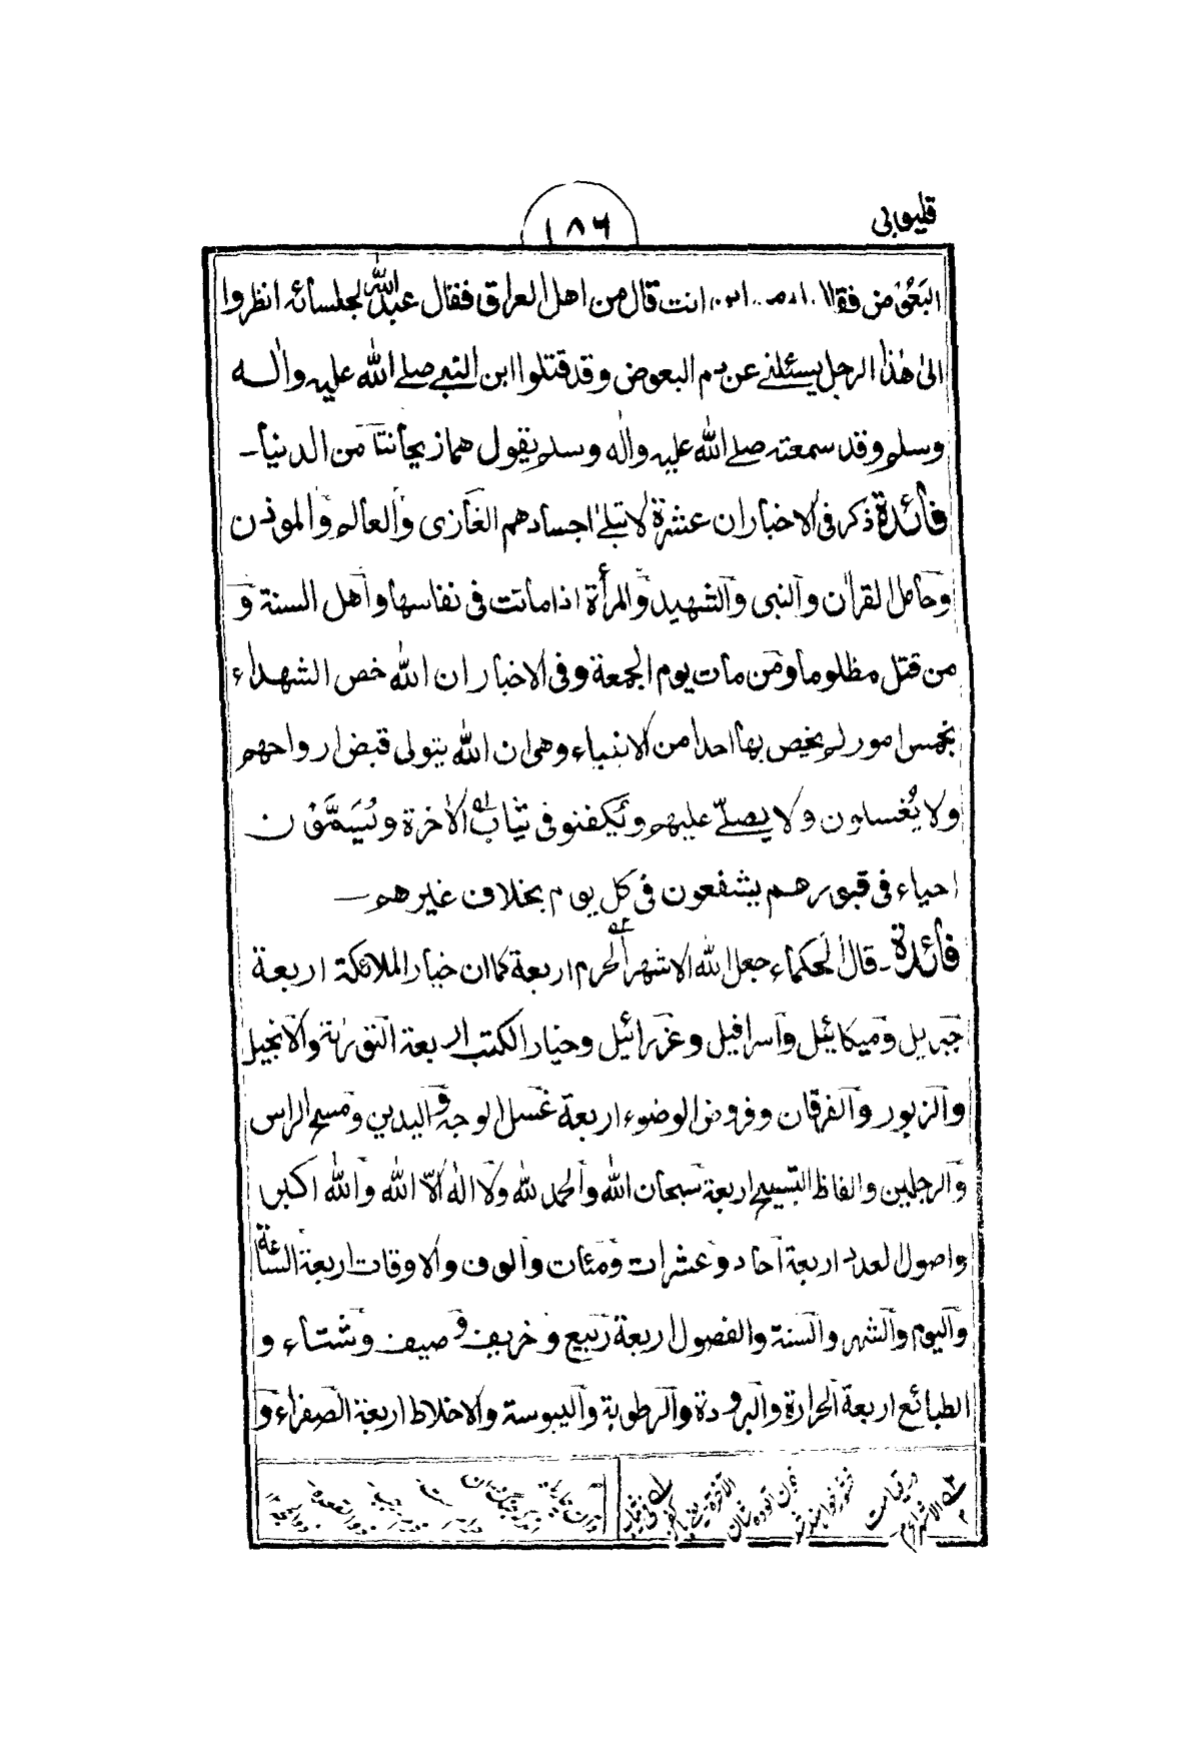 قليوبي
١٨٦
البَعُوْض فقا انت قال من اهل العراق فقال عبد الله لجلسائه انظروا
الىٰ هٰذا الرجل يسئلنے عن دم البعوض وقد قتلوا ابن النبے صلے الله عليه واٰله
وسلم وقد سمعته صلے الله عليه واٰله وسلم يقول هما ريحانتا من الدنيا۔
فائدة ذكر فى الاخبار ان عشرة لا تبلےٰ اجسادهم الغازى والعالم والموذن
وحامل القراٰن والنبى والشهيد والمرأة اذا ماتت فى نفاسها واهل السنة و
من قتل مظلوما ومن مات يوم الجمعة وفى الاخبار ان الله خص الشهداء
بخمس امور لم يخص بها احدا من الانبياء وهى ان الله يتولى قبض ارواحهم
ولا يُغسلون ولا يصلّے عليهم ويُكفنو فى ثياب الاٰخرة ويُسَمَّوْن
احياء فى قبورهم يشفعون فى كل يوم بخلاف غيرهم ــ
فائدة ۔ قال الحكماء جعل الله الاشهر الحرم اربعة كما ان خيار الملائكة اربعة
جبريل وميكائيل واسرافيل وعزرائيل وخيار الكتب اربعة التورٰىة والانجيل
والزبور والفرقان وفروض الوضوء اربعة غسل الوجه واليدين ومسح الراس
والرجلين والفاظ التسبيح اربعة سبحان الله والحمد لله ولا الٰه الّا الله والله اكبر
واصول العدد اربعة آحاد وعشرات ومئات والوف والاوقات اربعة الساعة
واليوم والشهر والسنة والفصول اربعة ربيع وخريف وصيف وشتاء و
الطبائع اربعة الحرارة والبرودة والرطوبة واليبوسة والاخلاط اربعة الصفراء و